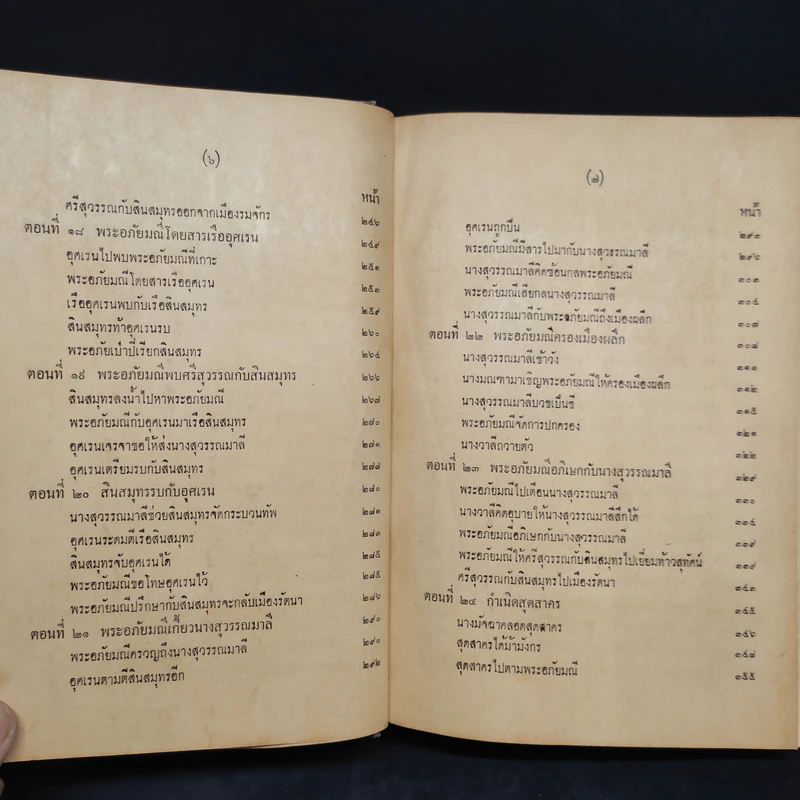 (๖)
หน้า
ศรีสุวรรณกับสินสมุทรออกจากเมืองรมจักร ๒๔๖
ตอนที่ ๑๘ พระอภัยมณีโดยสารเรืออุศเรน ๒๔๙
อุศเรนไปพบพระอภัยมณีที่เกาะ ๒๕๑
พระอภัยมณีโดยสารเรืออุศเรน ๒๕๓
เรืออุศเรนพบกับเรือสินสมุทร ๒๕๙
สินสมุทรท้าอุศเรนรบ ๒๖๐
พระอภัยเป่าปี่เรียกสินสมุทร ๒๖๔
ตอนที่ ๑๙ พระอภัยมณีพบศรีสุวรรณกับสินสมุทร ๒๖๖
สินสมุทรลงน้ำไปหาพระอภัยมณี ๒๖๗
พระอภัยมณีกับอุศเรนมาเรือสินสมุทร ๒๗๐
อุศเรนเจรจาขอให้ส่งนางสุวรรณมาลี ๒๗๑
อุศเรนเตรียมรบกับสินสมุทร ๒๗๘
ตอนที่ ๒๐ สินสมุทรรบกับอุศเรน ๒๘๐
นางสุวรรณมาลีช่วยสินสมุทรจัดกระบวนทัพ ๒๘๑
อุศเรนระดมตีเรือสินสมุทร ๒๘๓
สินสมุทรจับอุศเรนได้ ๒๘๕
พระอภัยมณีขอโทษอุศเรนไว้ ๒๘๕
พระอภัยมณีปรึกษากับสินสมุทรจะกลับเมืองรัตนา ๒๘๖
ตอนที่ ๒๑ พระอภัยมณีเกี้ยวนางสุวรรณมาลี ๒๙๐
พระอภัยมณีครวญถึงนางสุวรรณมาลี ๒๙๐
อุศเรนตามตีสินสมุทรอีก ๒๙๒
(๗)
หน้า
อุศเรนถูกปืน ๒๙๓
พระอภัยมณีมีสารไปมากับนางสุวรรณมาลี ๒๙๖
นางสุวรรณมาลีคิดซ้อนกลพระอภัยมณี ๓๐๓
พระอภัยมณีเสียกลนางสุวรรณมาลี ๓๐๔
นางสุวรรณมาลีกับพระอภัยมณีถึงเมืองผลึก ๓๐๗
ตอนที่ ๒๒ พระอภัยมณีครองเมืองผลึก ๓๐๘
นางสุวรรณมาลีเข้าวัง ๓๑๑
นางมณฑามาเชิญพระอภัยมณีให้ครองเมืองผลึก ๓๑๑
นางสุวรรณมาลีบวชเป็นชี ๓๑๕
พระอภัยมณีจัดการปกครอง ๓๒๑
นางวาลีถวายตัว ๓๒๒
ตอนที่ ๒๓ พระอภัยมณีอภิเษกกับนางสุวรรณมาลี ๓๒๙
พระอภัยมณีไปเตือนนางสุวรรณมาลี ๓๓๐
นางวาลีคิดอุบายให้นางสุวรรณมาลีสึกได้ ๓๓๔
พระอภัยมณีอภิเษกกับนางสุวรรณมาลี ๓๓๙
พระอภัยมณีให้ศรีสุวรรณกับสินสมุทรไปเยี่ยมท้าวสุทัศน์ ๓๓๙
ศรีสุวรรณกับสินสมุทรไปเมืองรัตนา ๓๔๓
ตอนที่ ๒๔ กำเนิดสุดสาคร ๓๔๕
นางมัจฉาคลอดสุดสาคร ๓๔๖
สุดสาครได้ม้ามังกร ๓๔๗
สุดสาครไปตามพระอภัยมณี ๓๕๕